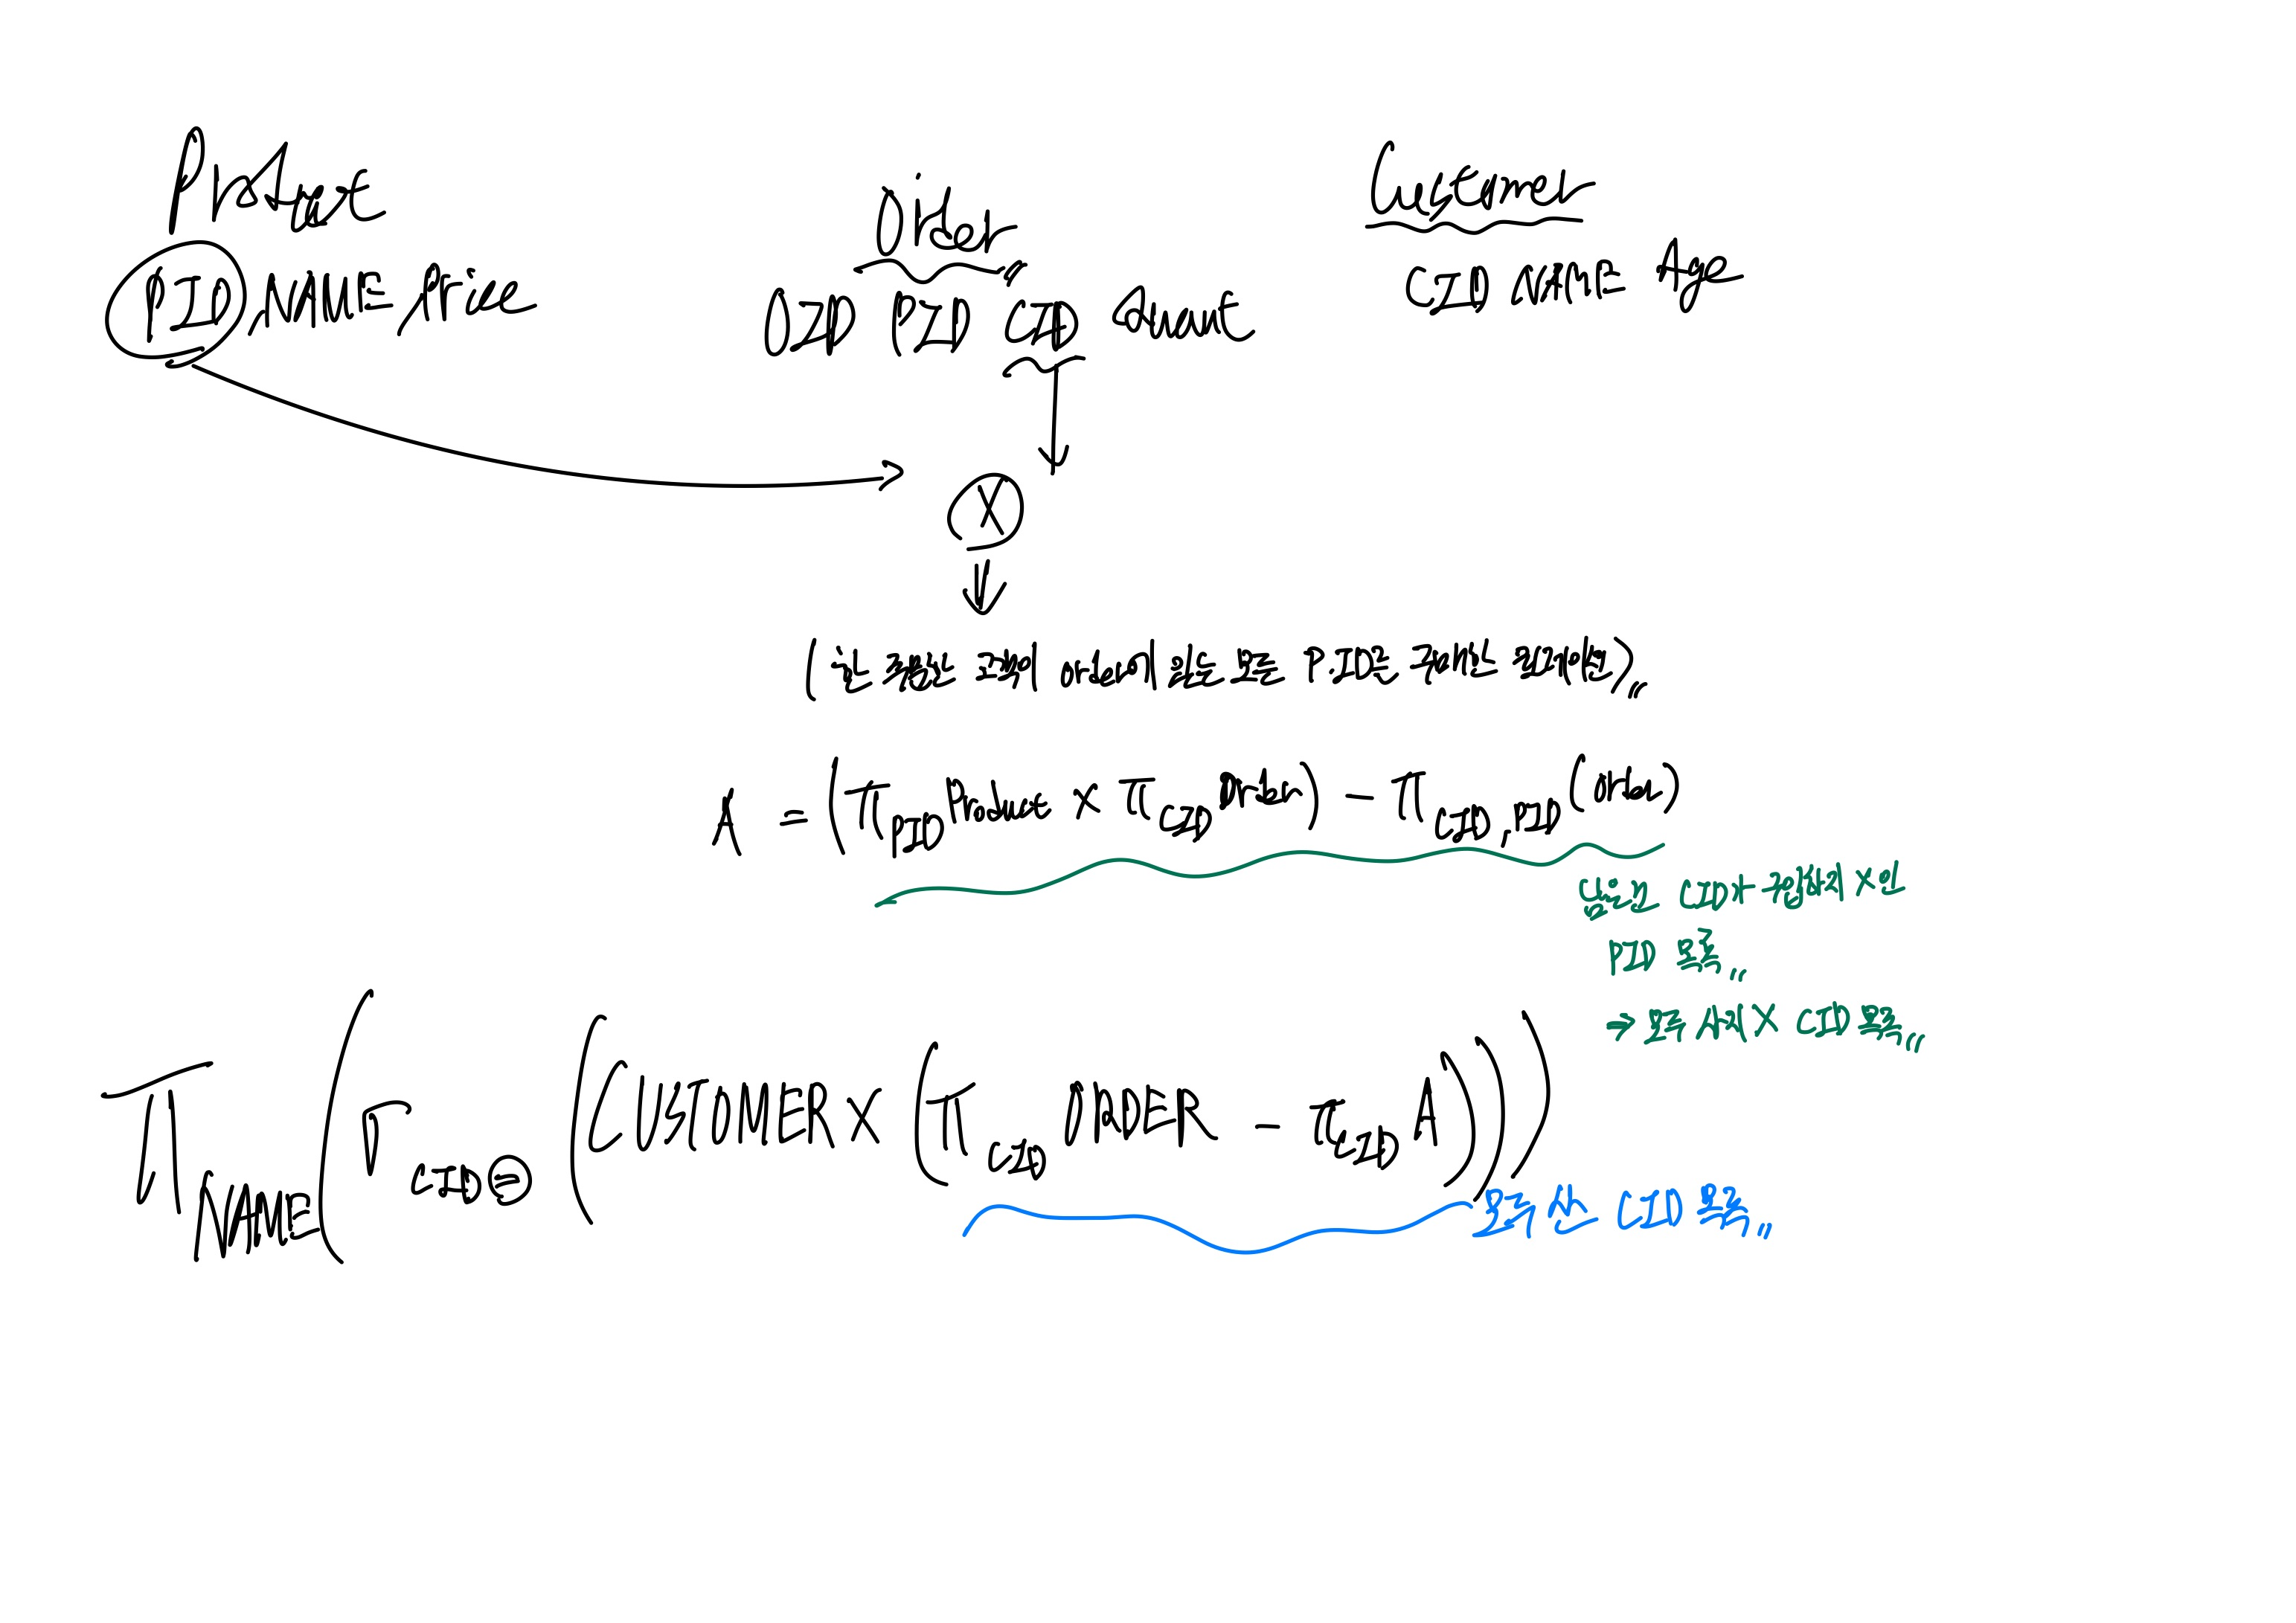 Product
Order
Customer
PID, NAME, Price
OID PID CID Quant
CID NAME Age
X
(는 주문한 고객이 order에 있는 모든 P.ID를 구매한 경우의)
A = (π PID Product × π CID Order) − π CID, PID (order)
남은건 CID가 구입하지 X인
PID 목록
⇒ 모두 사지 X CID 목록
π NAME (σ CID = (CUSTOMER X (π CID ORDER − π CID A)))
모두 산 CID 목록